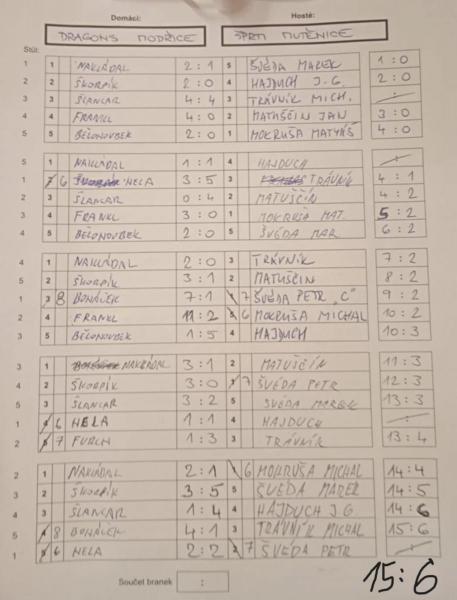 Domácí: Hosté:
DRAGONS MODŘICE ŠPRTI MUTĚNICE
Stůl:
1 1 NAKLÁDAL 2 : 1 5 ŠVÉDA MAREK 1 : 0
2 2 ŠKORPÍK 2 : 0 4 HAJDUCH J.G. 2 : 0
3 3 ŠLANCAR 4 : 4 3 TRÁVNÍK MICH. - : -
4 4 FRANKL 4 : 0 2 MATUŠČIN JAN 3 : 0
5 5 BĚLONOUBEK 2 : 0 1 MOKRUŠA MATYÁŠ 4 : 0
5 1 NAKLÁDAL 1 : 1 4 HAJDUCH - : -
1 6 HELA 3 : 5 3 TRÁVNÍK 4 : 1
2 3 ŠLANCAR 0 : 4 2 MATUŠČÍN 4 : 2
3 4 FRANKL 3 : 0 1 MOKRUŠA MAT. 5 : 2
4 5 BĚLONOUBEK 2 : 0 5 ŠVÉDA MAR. 6 : 2
4 1 NAKLÁDAL 2 : 0 3 TRÁVNÍK 7 : 2
5 2 ŠKORPÍK 3 : 1 2 MATUŠČIN 8 : 2
1 3 8 BONÁČEK 7 : 1 7 ŠVÉDA PETR "C" 9 : 2
2 4 FRANKL 11 : 2 6 MOKRUŠA MICHAL 10 : 2
3 5 BĚLONOUBEK 1 : 5 4 HAJDUCH 10 : 3
3 1 NAKLÁDAL 3 : 1 2 MATUŠČÍN 11 : 3
4 2 ŠKORPÍK 3 : 0 7 ŠVÉDA PETR 12 : 3
5 3 ŠLANCAR 3 : 2 5 ŠVÉDA MAREK 13 : 3
1 6 HELA 1 : 1 4 HAJDUCH - : -
2 7 FURCH 1 : 3 3 TRÁVNÍK 13 : 4
2 1 NAKLÁDAL 2 : 1 6 MOKRUŠA MICHAL 14 : 4
3 2 ŠKORPÍK 3 : 5 5 ŠVÉDA MAREK 14 : 5
4 3 ŠLANCAR 1 : 4 4 HAJDUCH J.G 14 : 6
5 8 BONÁČEK 4 : 1 3 TRÁVNÍK MICHAL 15 : 6
1 6 HELA 2 : 2 7 ŠVÉDA PETR - : -
Součet branek : 15 : 6